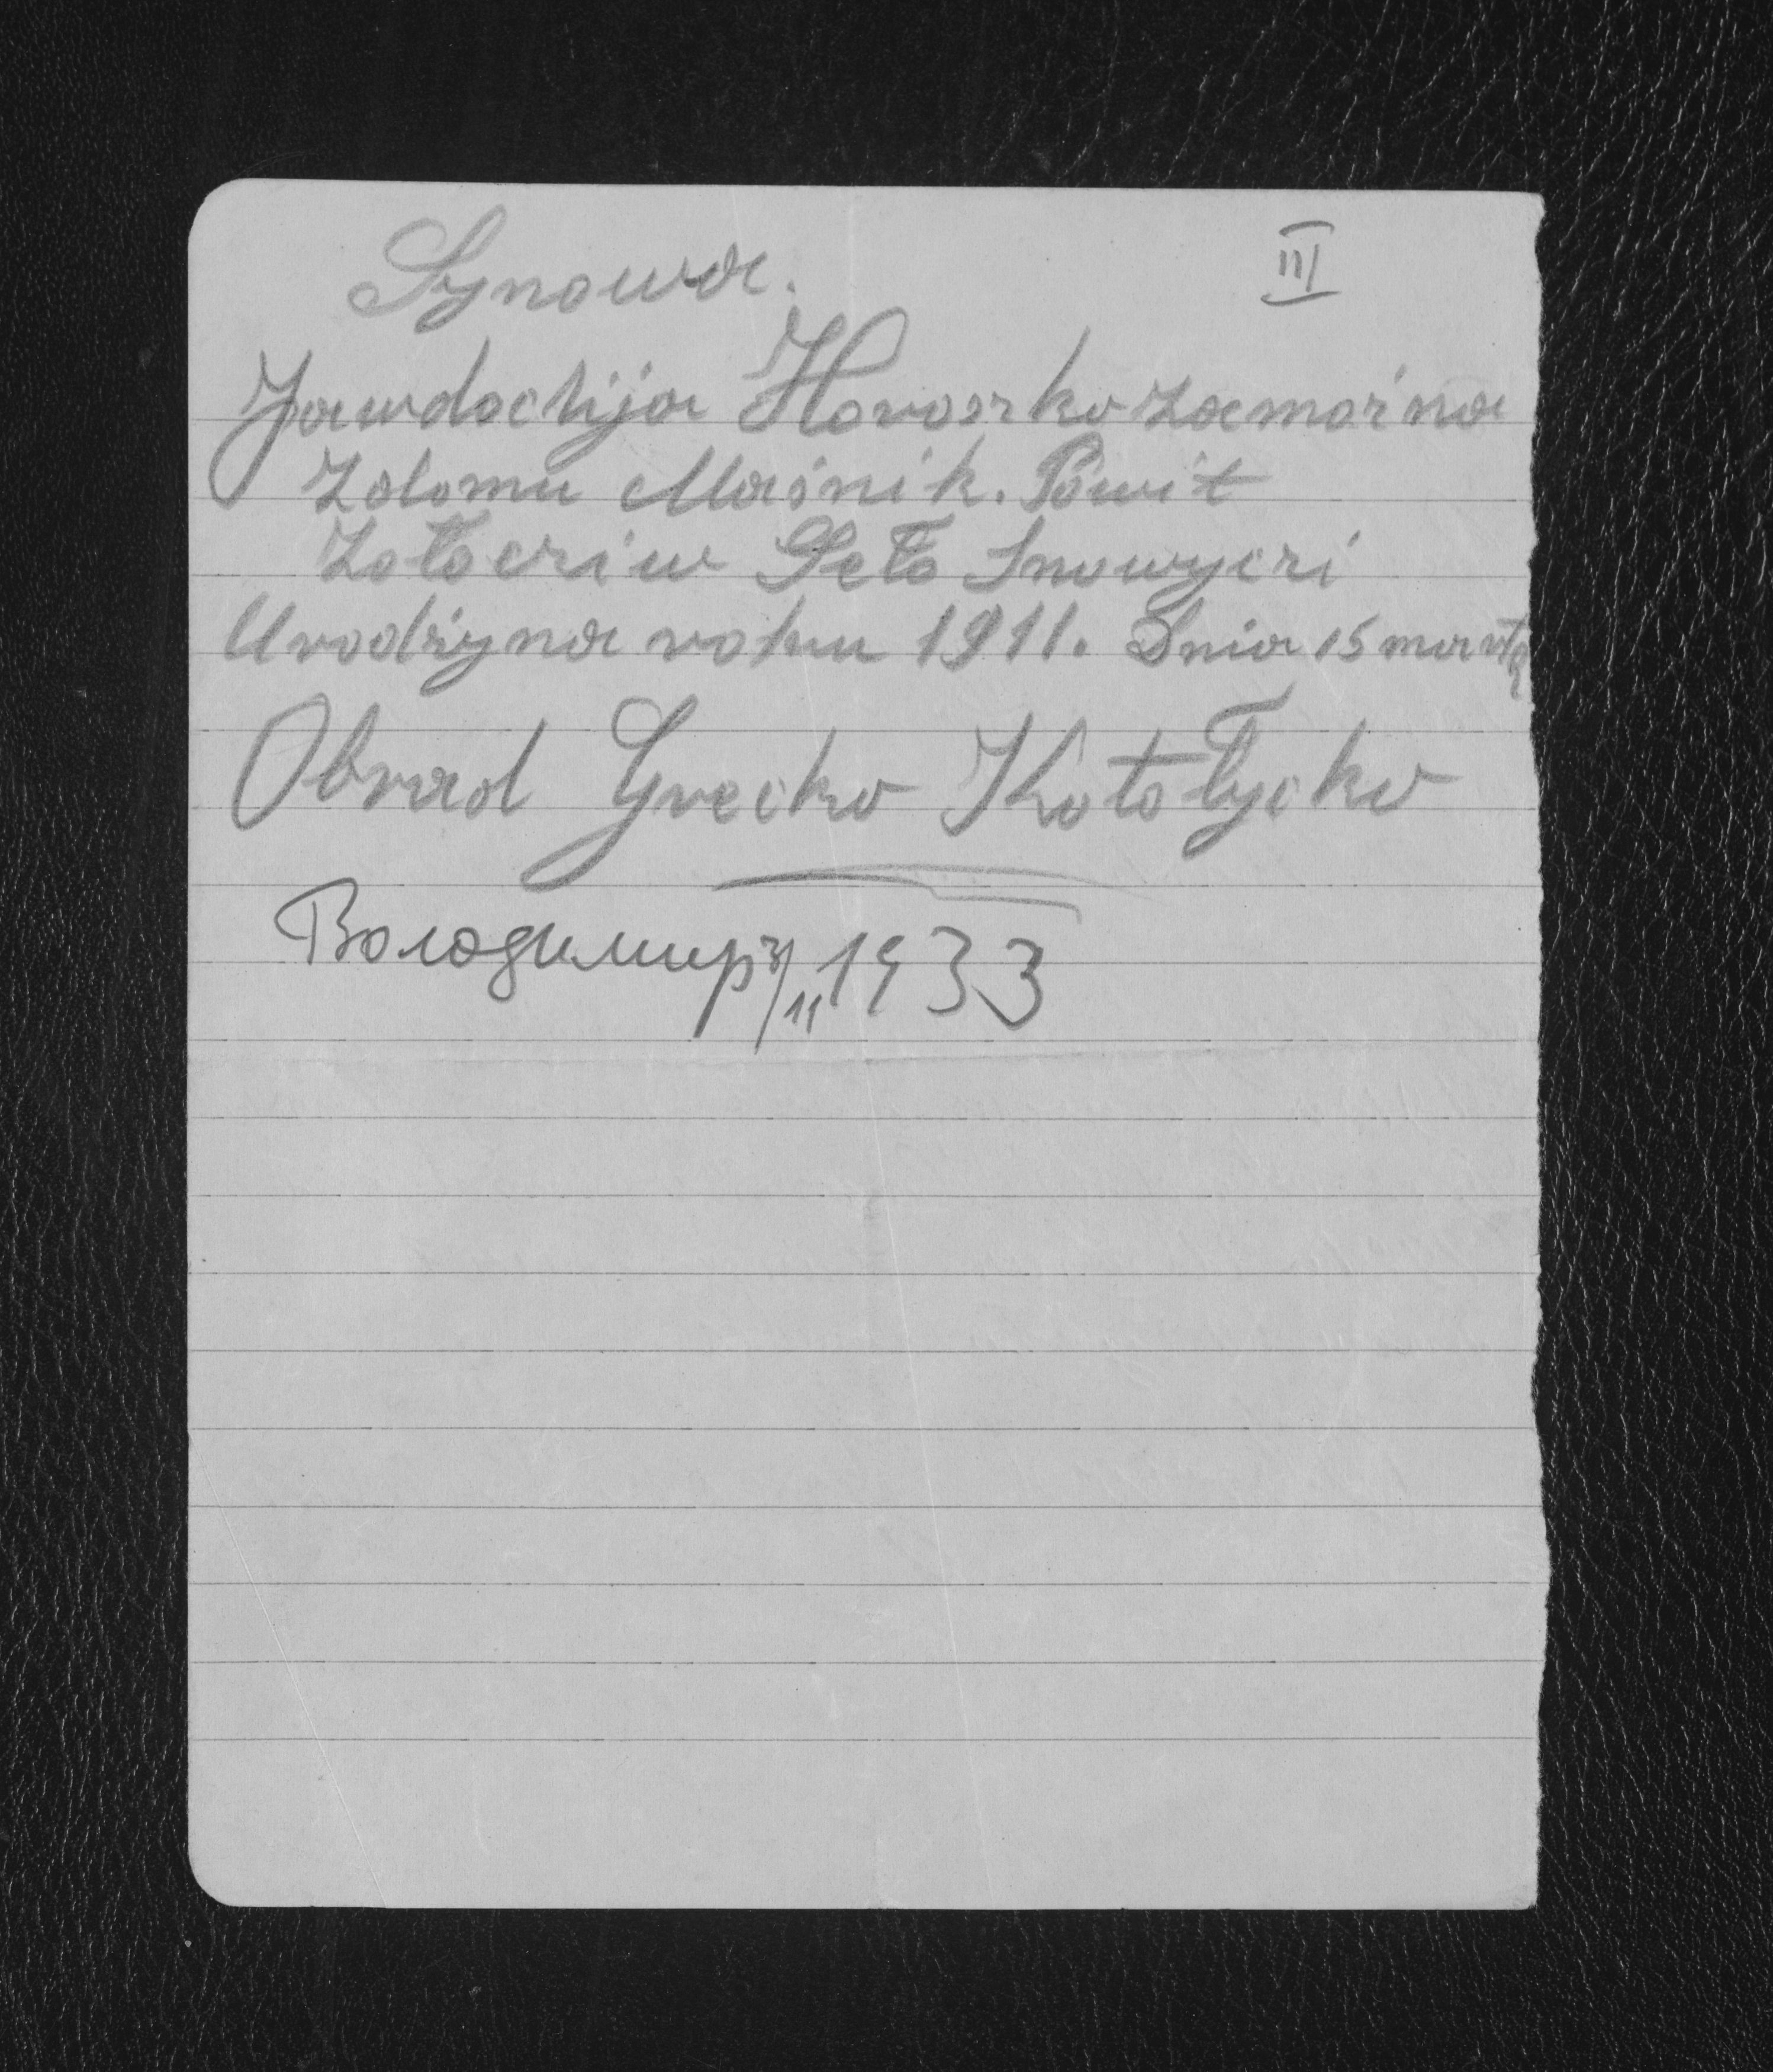 Synowa. III
Jawdochija Horoszko zamożna
Zdomu Maśnik. Powit
Zołocziw Seło Snowyczi
Urodżyna roku 1911. Dnia 15 marta
Obrad Grecko Katołycko
Володимир 1933